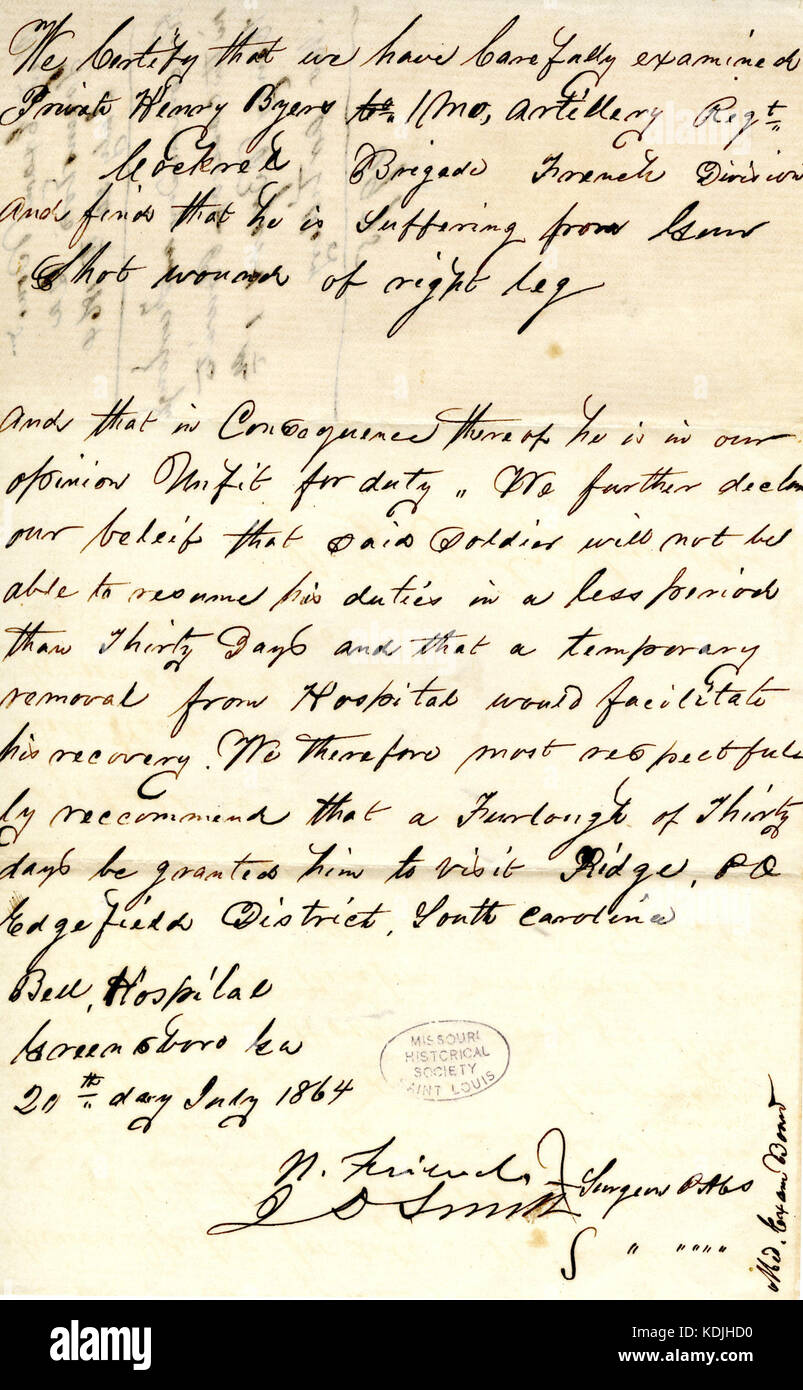 We Certify that we have Carefully examined
Private Henry Byers 1 Mo, Artillery Regt
Cockrel Brigade French Division
And find that he is Suffering from Gun
Shot wound of right leg
And that in Consequence thereof he is in our
opinion Unfit for duty „ We further declare
our beleif that said Soldier will not be
able to resume his duties in a less period
than Thirty Days and that a temporary
removal from Hospital would facilitate
his recovery. We therefore most respectful
ly reccommend that a Furlough of Thirty
days be granted him to visit Ridge, PO
Edgefield District, South Carolina
Bell, Hospital
Greensboro Ga
20th day July 1864
MISSOURI
HISTORICAL
SOCIETY
SAINT LOUIS
N. Friend
D Smith
Surgeon
" " " " "
Med. Exam Board
alamy
Image ID: KDJHD0
www.alamy.com